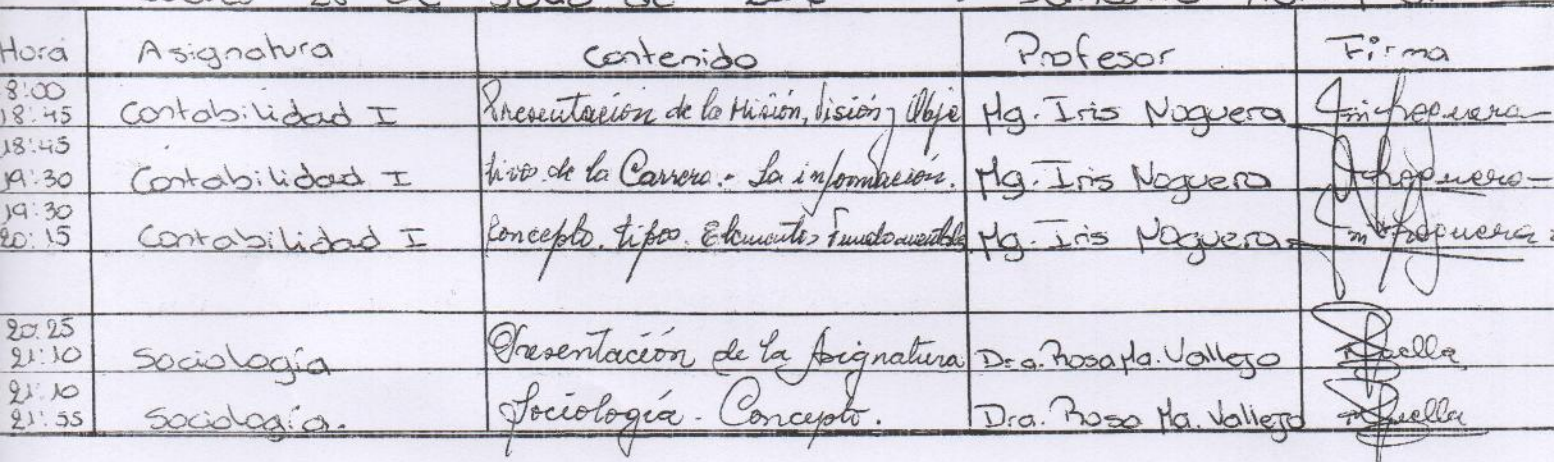 Hora Asignatura Contenido Profesor Firma
8:00
18:45 Contabilidad I Presentación de la Misión, Visión y Obje Mg. Iris Noguera
18:45
19:30 Contabilidad I tivos de la Carrera.- La información. Mg. Iris Noguera
19:30
20:15 Contabilidad I Concepto. tipos. Elementos Fundamentales Mg. Iris Noguera
20:25
21:10 Sociología Presentación de la Asignatura Dra. Rosa Ma. Vallejo
21:10
21:55 Sociología. Sociología - Concepto. Dra. Rosa Ma. Vallejo